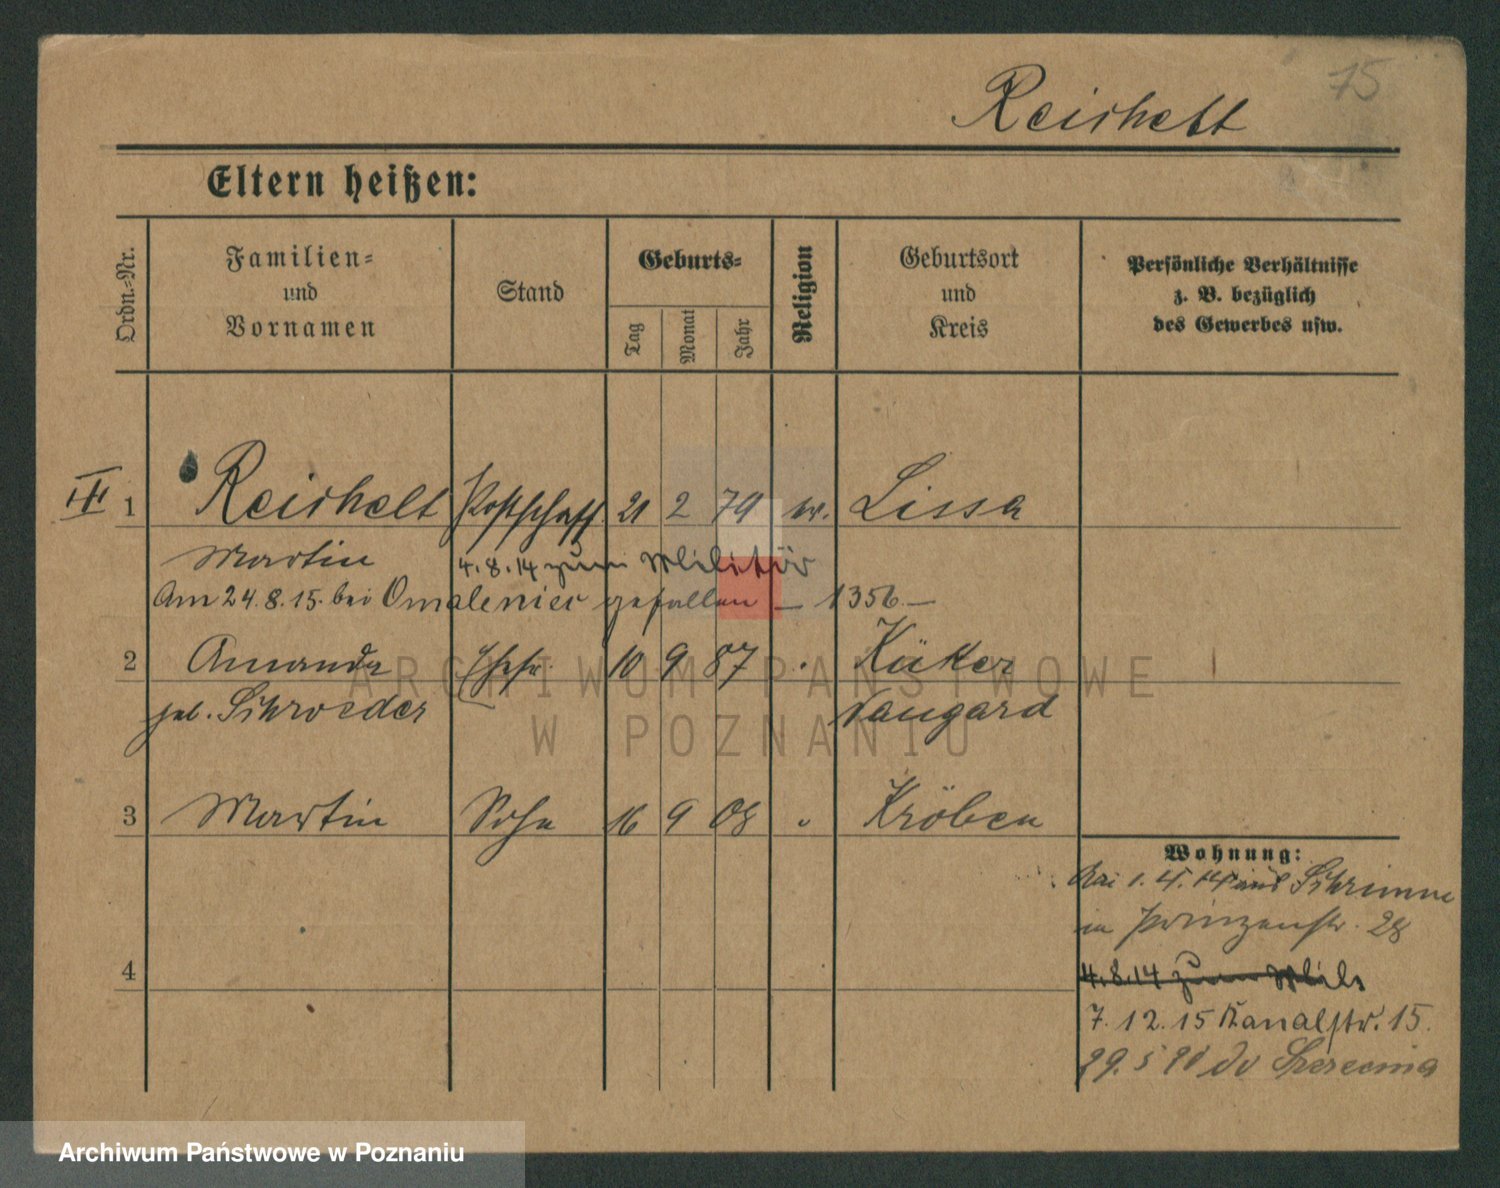 75
Reichelt
Eltern heißen:
Ordn.-Nr.
Familien-
und
Vornamen
Stand
Geburts-
Tag
Monat
Jahr
Religion
Geburtsort
und
Kreis
Persönliche Verhältnisse
z. B. bezüglich
des Gewerbes usw.
III 1 Reichelt Postschaff. 21 2 79 ev. Lissa
Martin 4.8.14 zum Militär
Am 24.8.15. bei Omeleniec gefallen – 1356 –
2 Amanda Ehefr. 10 9 87 " Käker
geb. Schroeder Naugard
3 Martin Sohn 16 9 08 " Kröben
Wohnung:
1.4.14 aus Schrimm
in Prinzenstr. 28
4
4.8.14 zum Mil.
7.12.15 Kanalstr. 15.
29.5 20 do
ARCHIWUM PAŃSTWOWE
W POZNANIU
Archiwum Państwowe w Poznaniu